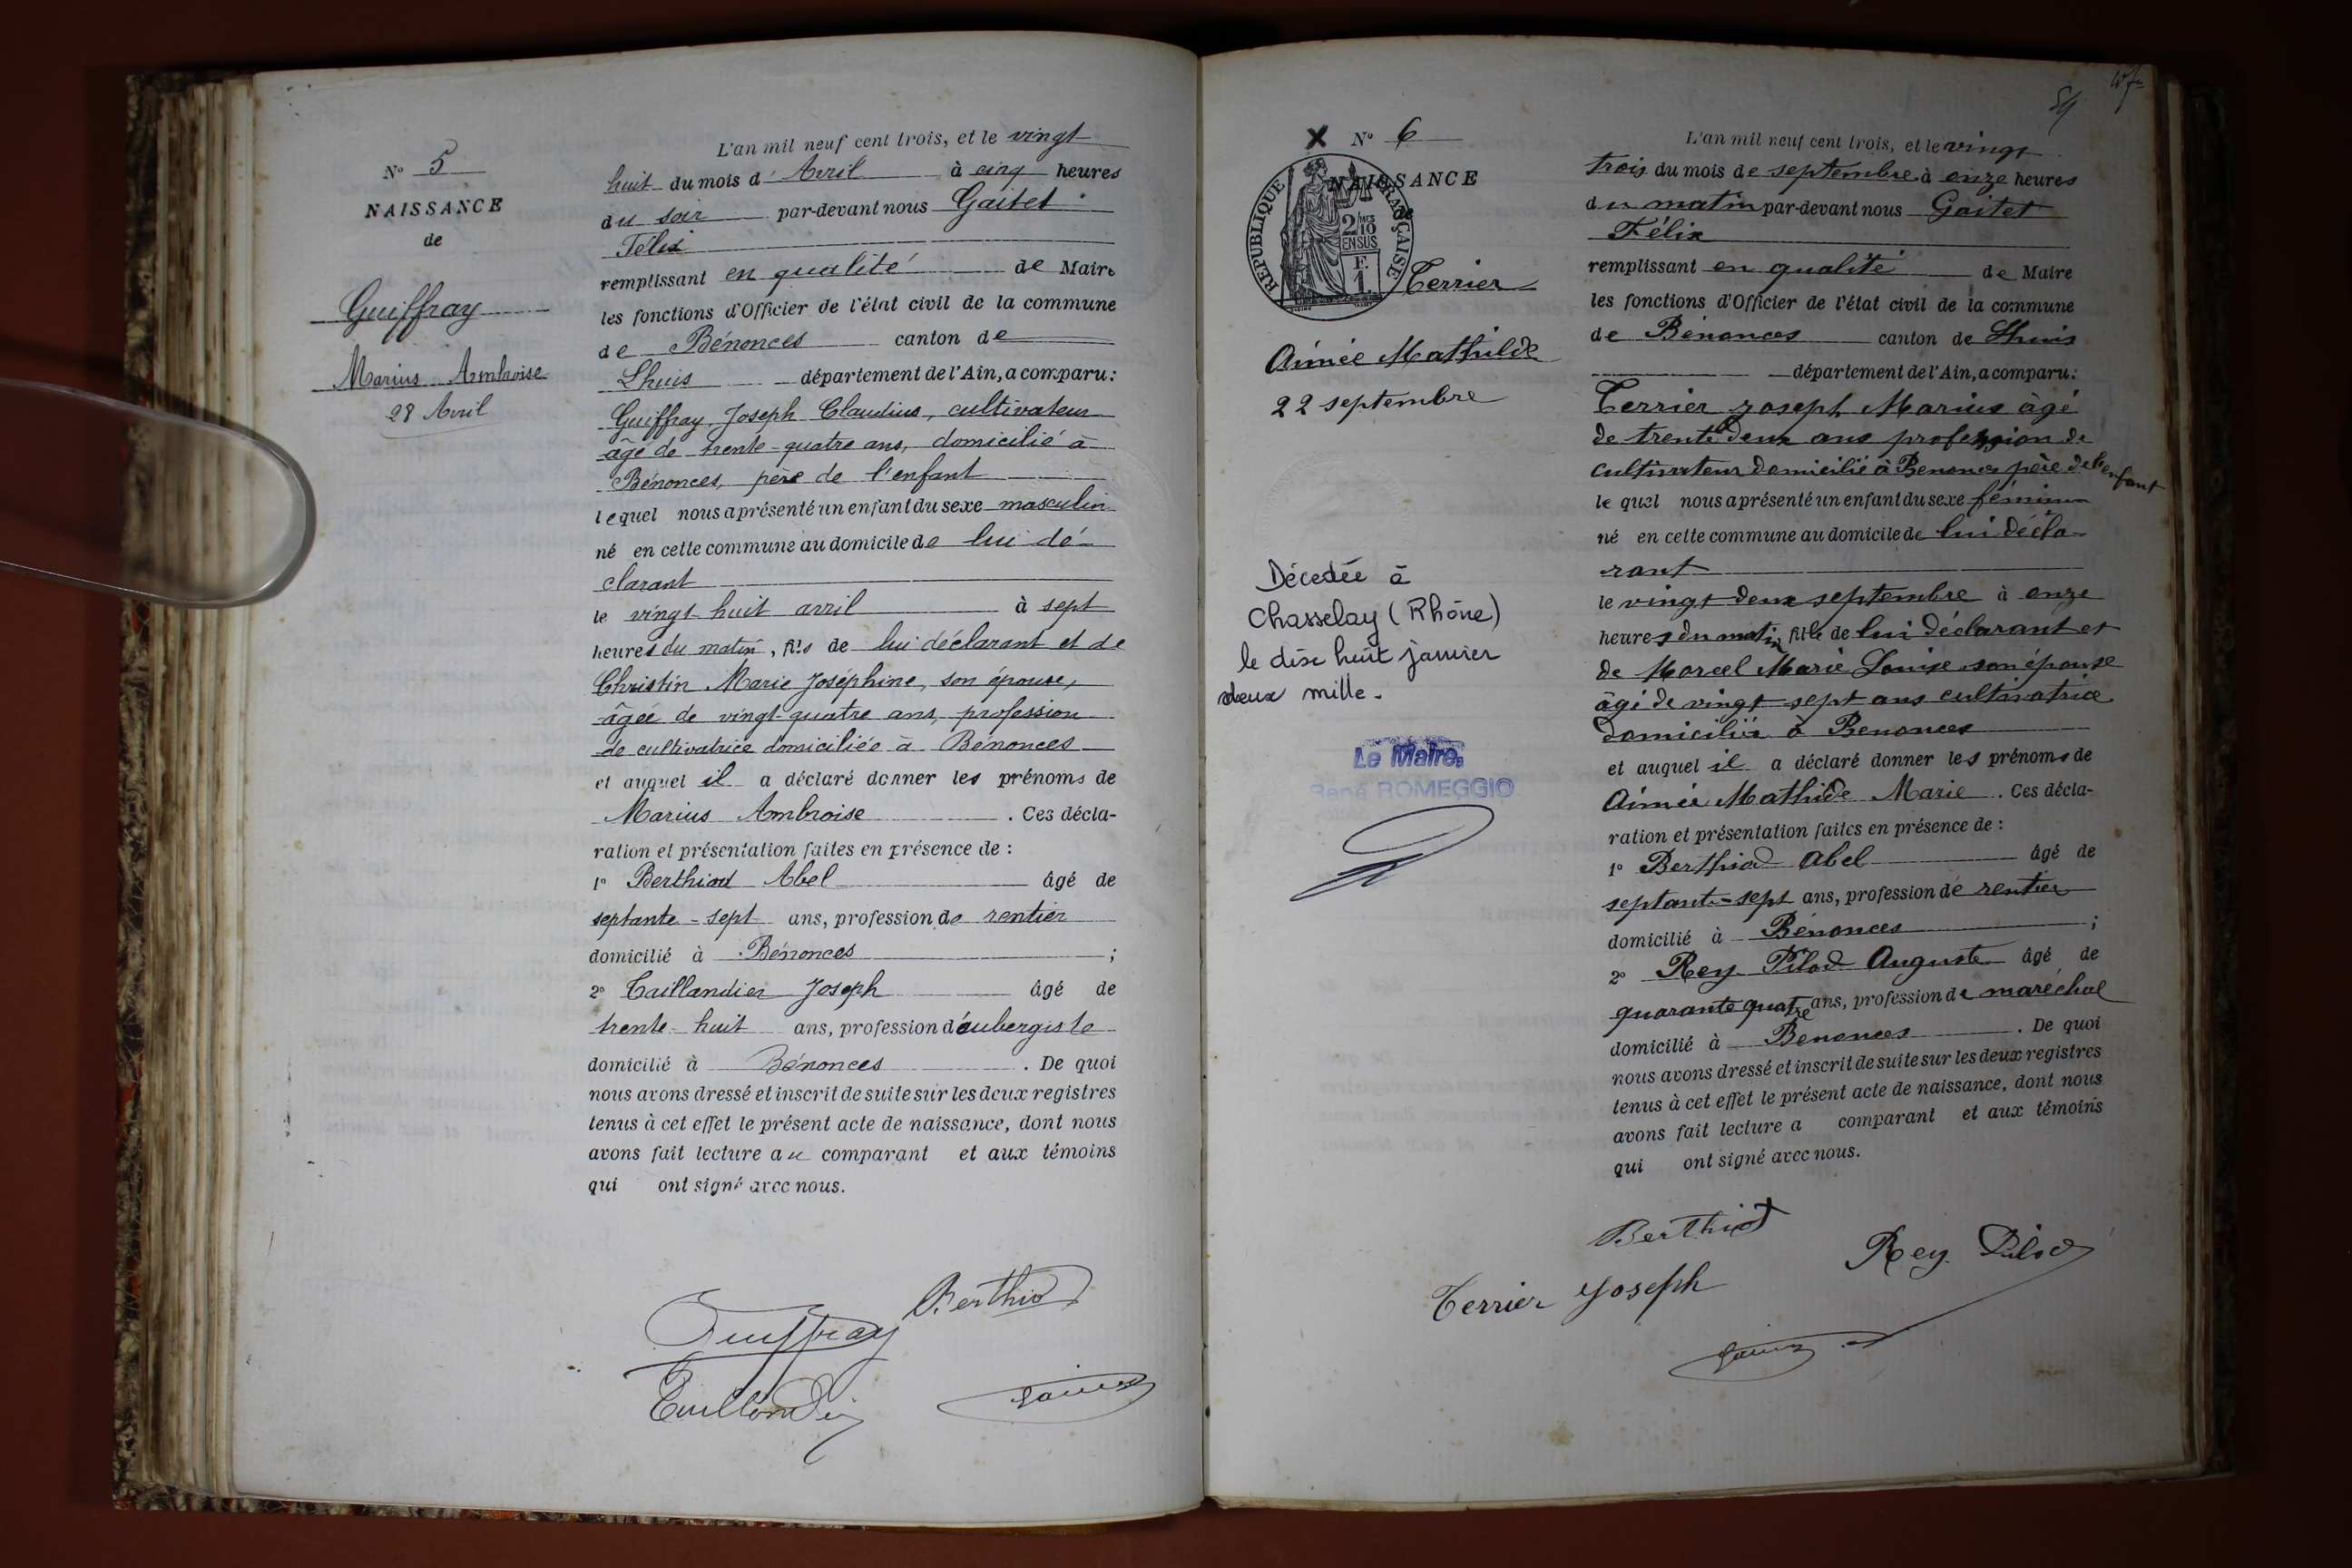 N° 5
NAISSANCE
de
Guiffray
Marius Ambroise
28 Avril
L'an mil neuf cent trois, et le vingt
huit du mois d' Avril à cinq heures
du soir par-devant nous Gaitet
Félix
remplissant en qualité de Maire
les fonctions d'Officier de l'état civil de la commune
de Bénonces canton de
Lhuis département de l'Ain, a comparu:
Guiffray Joseph Claudius, cultivateur
âgé de trente-quatre ans, domicilié à
Bénonces, père de l'enfant
lequel nous a présenté un enfant du sexe masculin
né en cette commune au domicile de lui dé-
clarant
le vingt-huit avril à sept
heures du matin, fils de lui déclarant et de
Christin Marie Joséphine, son épouse,
âgée de vingt-quatre ans, profession
de cultivatrice domiciliée à Bénonces
et auquel il a déclaré donner les prénoms de
Marius Ambroise. Ces décla-
ration et présentation faites en présence de :
1° Berthiod Abel âgé de
septante-sept ans, profession de rentier
domicilié à Bénonces ;
2° Taillandier Joseph âgé de
trente-huit ans, profession d'aubergiste
domicilié à Bénonces. De quoi
nous avons dressé et inscrit de suite sur les deux registres
tenus à cet effet le présent acte de naissance, dont nous
avons fait lecture au comparant et aux témoins
qui ont signé avec nous.
Berthiod
Guiffray
Taillandier
59
N° 6
NAISSANCE
de
REPUBLIQUE FRANÇAISE
2/10 MES
EN SUS
F.
1.
Terrier
Aimée Mathilde
22 septembre
Décedée à
Chasselay (Rhône)
le dix huit janvier
deux mille.
Le Maire,
René ROMEGGIO
L'an mil neuf cent trois, et le vingt
trois du mois de septembre à onze heures
du matin par-devant nous Gaitet
Félix
remplissant en qualité de Maire
les fonctions d'Officier de l'état civil de la commune
de Bénonces canton de Lhuis
département de l'Ain, a comparu:
Terrier Joseph Marius âgé
de trente deux ans profession de
cultivateur domicilié à Benonces père de l'enfant
lequel nous a présenté un enfant du sexe féminin
né en cette commune au domicile de lui décla-
rant
le vingt deux septembre à onze
heures du matin fille de lui déclarant et
de Marcel Marie Louise son épouse
âgé de vingt-sept ans cultivatrice
domiciliée à Benonces
et auquel il a déclaré donner les prénoms de
Aimée Mathide Marie. Ces décla-
ration et présentation faites en présence de :
1° Berthiod Abel âgé de
septante-sept ans, profession de rentier
domicilié à Bénonces ;
2° Rey Pilod Auguste âgé de
quarante quatre ans, profession de maréchal
domicilié à Benonces. De quoi
nous avons dressé et inscrit de suite sur les deux registres
tenus à cet effet le présent acte de naissance, dont nous
avons fait lecture a comparant et aux témoins
qui ont signé avec nous.
Berthiod
Rey Pilod
Terrier Joseph